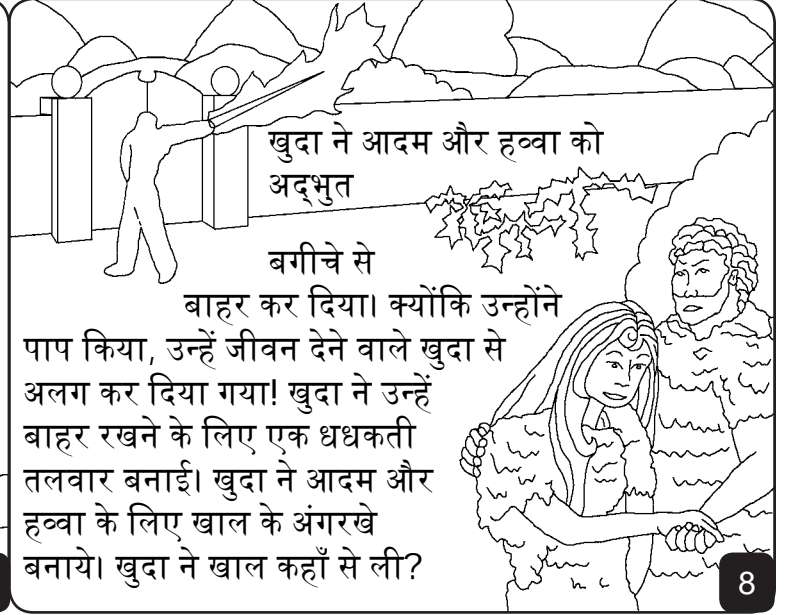 खुदा ने आदम और हव्वा को
अद्भुत
बगीचे से
बाहर कर दिया। क्योंकि उन्होंने
पाप किया, उन्हें जीवन देने वाले खुदा से
अलग कर दिया गया! खुदा ने उन्हें
बाहर रखने के लिए एक धधकती
तलवार बनाई। खुदा ने आदम और
हव्वा के लिए खाल के अंगरखे
बनाये। खुदा ने खाल कहाँ से ली?
8